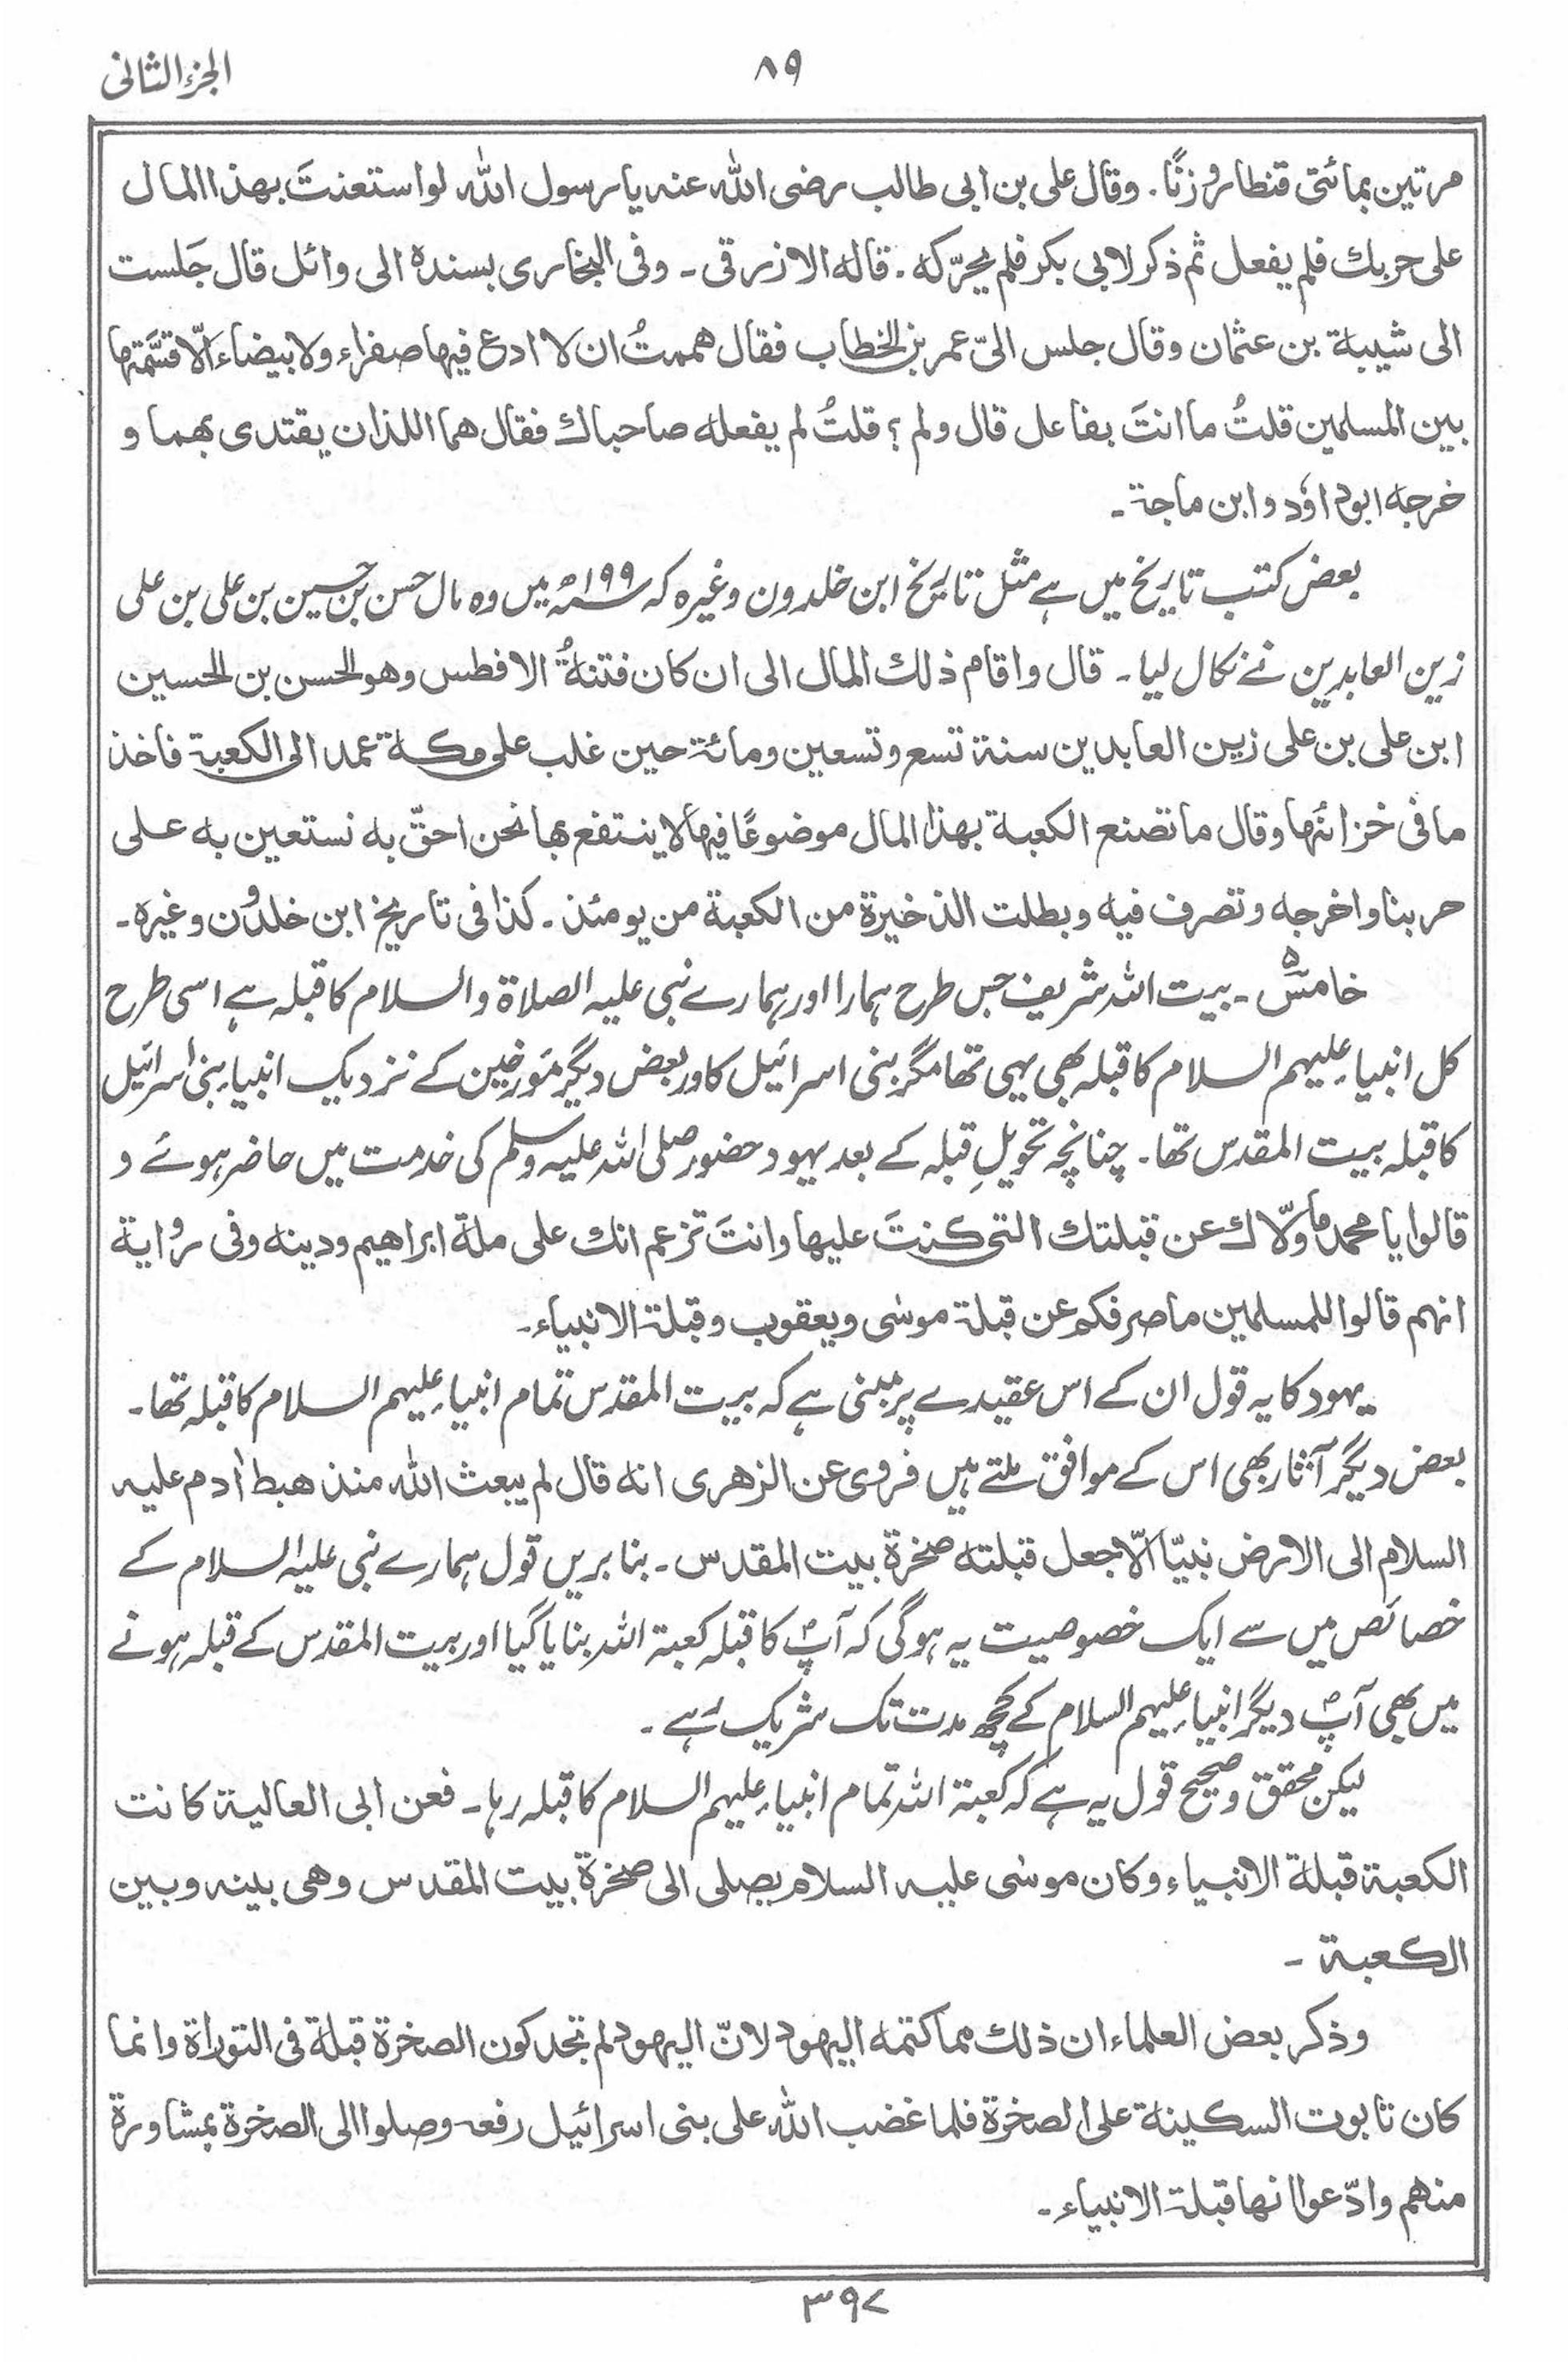 الجزء الثانی
۸۹
مرتین بمائتی قنطار وزنًا۔ وقال علی بن ابی طالب رضی الله عنه یا رسول الله لو استعنتَ بهذا المال
علی حربك فلم یفعل ثم ذکر لابی بکر فلم یحرّکه۔ قاله الازرقی۔ وفی البخاری بسنده الی وائل قال جَلست
الی شیبة بن عثمان وقال جلس الیّ عمر بن الخطاب فقال هممتُ ان لا ادع فیها صفراء ولا بیضاء اِلّا قسَّمتها
بین المسلمین قلتُ ما انتَ بفاعل قال ولم؟ قلتُ لم یفعله صاحباك فقال هما اللذان یقتدی بهما و
خرجه ابوداؤد وابن ماجة۔
بعض کتب تاریخ میں ہے مثل تاریخ ابن خلدون وغیرہ کہ ۱۹۹ھ میں وہ مال حسن بن حسین بن علی بن علی
زین العابدین نے نکال لیا۔ قال واقام ذلك المال الی ان کان فتنةُ الافطس وهو الحسن بن الحسین
ابن علی بن علی زین العابدین سنة تسع وتسعین ومائة حین غلب علی مکة عمد الی الکعبة فاخذ
ما فی خزائنها وقال ما تصنع الکعبة بهذا المال موضوعًا فیها لا ینتفع بها نحن احقّ به نستعین به علی
حربنا واخرجه وتصرف فیه وبطلت الذخیرة من الکعبة من یومئذ۔ کذا فی تاریخ ابن خلدون وغیره۔
خامس۵۔ بیت اللہ شریف جس طرح ہمارا اور ہمارے نبی علیہ الصلاۃ والسلام کا قبلہ ہے اسی طرح
کل انبیاء علیہم السلام کا قبلہ بھی یہی تھا مگر بنی اسرائیل کا اور بعض دیگر مؤرخین کے نزدیک انبیاء بنی اسرائیل
کا قبلہ بیت المقدس تھا۔ چنانچہ تحویلِ قبلہ کے بعد یہود حضور صلی اللہ علیہ وسلم کی خدمت میں حاضر ہوئے و
قالوا یا محمد ما ولّاك عن قبلتك التی کنتَ علیها وانتَ تزعم انك علی ملة ابراهیم ودینه وفی روایة
انهم قالوا للمسلمین ما صرفکم عن قبلة موسٰی ویعقوب وقبلة الانبیاء۔
یہود کا یہ قول ان کے اس عقیدے پر مبنی ہے کہ بیت المقدس تمام انبیاء علیہم السلام کا قبلہ تھا۔
بعض دیگر آثار بھی اس کے موافق ملتے ہیں فروی عن الزهری انه قال لم یبعث الله منذ هبط اٰدم علیه
السلام الی الارض نبیّا اِلّا جعل قبلته صخرة بیت المقدس۔ بنا بریں قول ہمارے نبی علیہ السلام کے
خصائص میں سے ایک خصوصیت یہ ہوگی کہ آپؐ کا قبلہ کعبۃ اللہ بنایا گیا اور بیت المقدس کے قبلہ ہونے
میں بھی آپؐ دیگر انبیاء علیہم السلام کے کچھ مدت تک شریک رہے۔
لیکن محقق و صحیح قول یہ ہے کہ کعبۃ اللہ تمام انبیاء علیہم السلام کا قبلہ رہا۔ فعن ابی العالیة کانت
الکعبة قبلة الانبیاء وکان موسٰی علیه السلام یصلی الی صخرة بیت المقدس وهی بینه وبین
الکعبة۔
وذکر بعض العلماء ان ذلك مما کتمه الیهود لانّ الیهود لم تجد کون الصخرة قبلة فی التوراة وانما
کان تابوت السکینة علی الصخرة فلما غضب الله علی بنی اسرائیل رفعه وصلوا الی الصخرة بمشاورة
منهم وادّعوا انها قبلة الانبیاء۔
۳۹۷